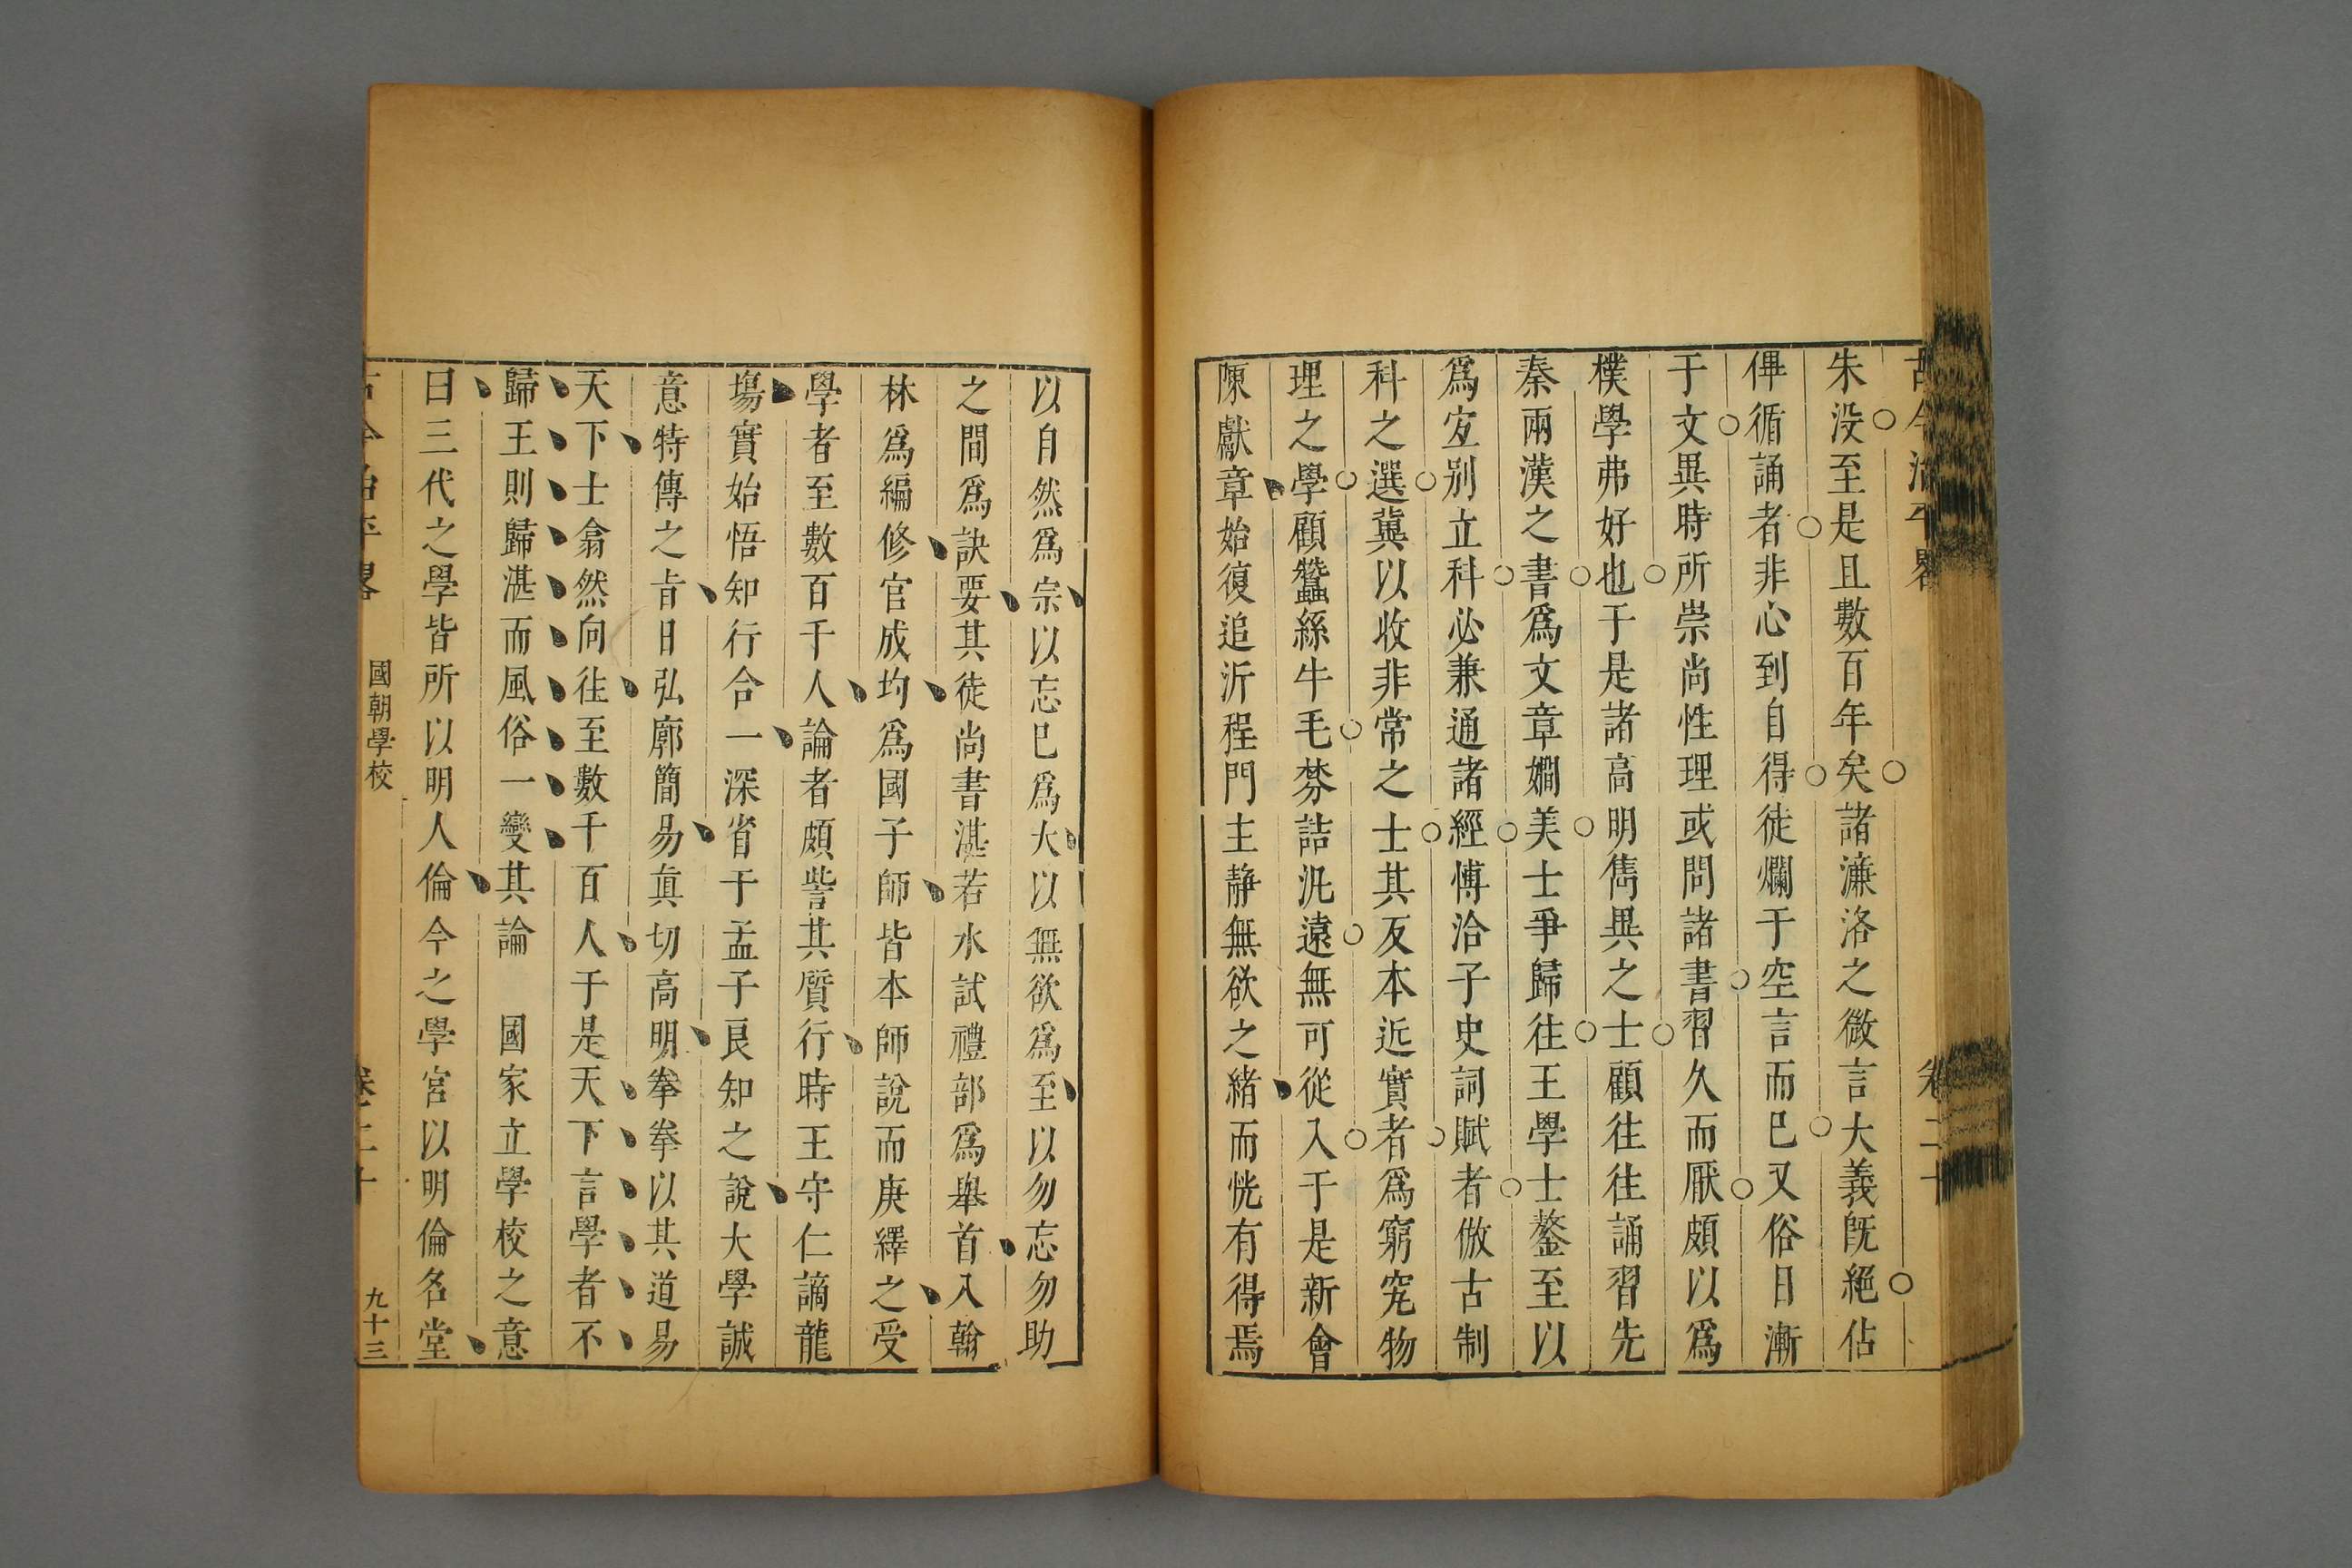 古今治平畧 卷二十
朱没至是且數百年矣諸濂洛之微言大義既絕佔
俾循誦者非心到自得徒爛于空言而已又俗日漸
于文異時所崇尚性理或問諸書習久而厭頗以爲
樸學弗好也于是諸高明雋異之士顧往往誦習先
秦兩漢之書爲文章嫺美士爭歸往王學士鏊至以
爲宜别立科必兼通諸經博洽子史詞賦者倣古制
科之選冀以收非常之士其反本近實者爲窮究物
理之學顧蠶絲牛毛棼詰汎遠無可從入于是新會
陳獻章始復追沂程門主静無欲之緒而恍有得焉
以自然爲宗以忘已爲大以無欲爲至以勿忘勿助
之間爲訣要其徒尚書湛若水試禮部爲舉首入翰
林爲編修官成均爲國子師皆本師說而庚繹之受
學者至數百千人論者頗訾其質行時王守仁謫龍
塲實始悟知行合一深省于孟子良知之說大學誠
意特傳之旨日弘廓簡易眞切高明拳拳以其道易
天下士翕然向往至數千百人于是天下言學者不
歸王則歸湛而風俗一變其論 國家立學校之意
曰三代之學皆所以明人倫今之學宮以明倫名堂
古今治平畧 國朝學校 卷二十 九十三